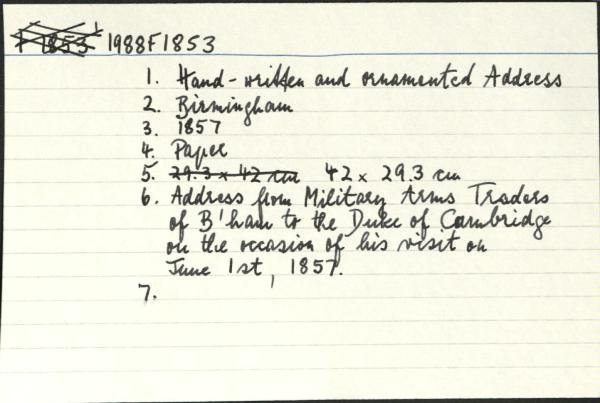 F 1853 1988F1853
1. Hand-written and ornamented Address
2. Birmingham
3. 1857
4. Paper
5. 29.3 x 42 cm 42 x 29.3 cm
6. Address from Military Arms Traders
of B'ham to the Duke of Cambridge
on the occasion of his visit on
June 1st, 1857.
7.